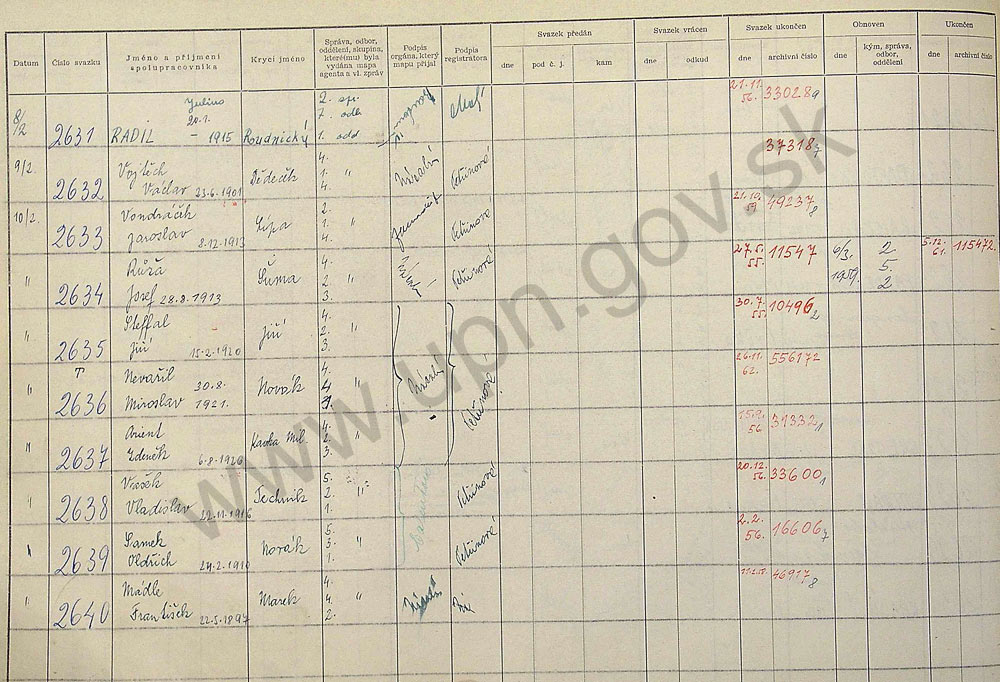 Datum
Číslo svazku
Jméno a příjmení
spolupracovníka
Krycí jméno
Správa, odbor,
oddělení, skupina,
které(mu) byla
vydána mapa
agenta a vl. zpráv
Podpis
orgána, který
mapu přijal
Podpis
registrátora
Svazek předán
dne
pod č. j.
kam
Svazek vrácen
dne
odkud
Svazek ukončen
dne
archivní číslo
Obnoven
dne
kým, správa,
odbor,
oddělení
Ukončen
dne
archivní číslo
8/2
2631
Julius
20.1.
RADIL – 1915
Roudnický
2. spr.
7. odb.
1. odd
21.11.
56.
33028 9
9/2.
2632
Vojtěch
Václav 23.6.1901
Dědeček
4.
1. "
4.
37318 7
10/2.
2633
Vondráček
Jaroslav 8.12.1913
Lípa
2.
1. "
4.
21.10.
49237 8
"
2634
Růža
Josef 28.8.1913
Šuma
4.
2 "
3.
27.5.
55.
11547
6/3.
1959.
2
5.
2
5.12.
61.
115472
"
2635
Steffal
Jiří 15.2.1920
Jiří
4.
2. "
3.
30.7.
55.
10496 2
"
2636
Nevařil 30.8.
Miroslav 1921.
Novák
4.
4 "
26.11.
62.
556172
"
2637
Orient
Zdeněk 6.8.1926
Kavka Mil.
4.
2. "
3.
56
31332 1
2638
Vladislav 22.11.1916
Technik
5.
2.
1.
20.12.
56.
33600 1
2639
Samek
Oldřich 24.2.1910
Novák
5.
3. "
1.
2.2.
56.
16606 7
2640
Mádle
František 22.5.1897
Marek
4.
4. "
2.
46917 8
www.upn.gov.sk